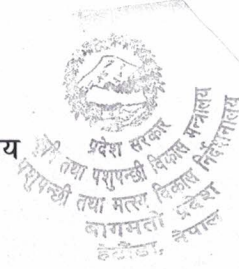 य
प्रदेश सरकार
कृषि तथा पशुपन्छी विकास मन्त्रालय
पशुपन्छी तथा मत्स्य विकास निर्देशनालय
बागमती प्रदेश
हेटौंडा, नेपाल